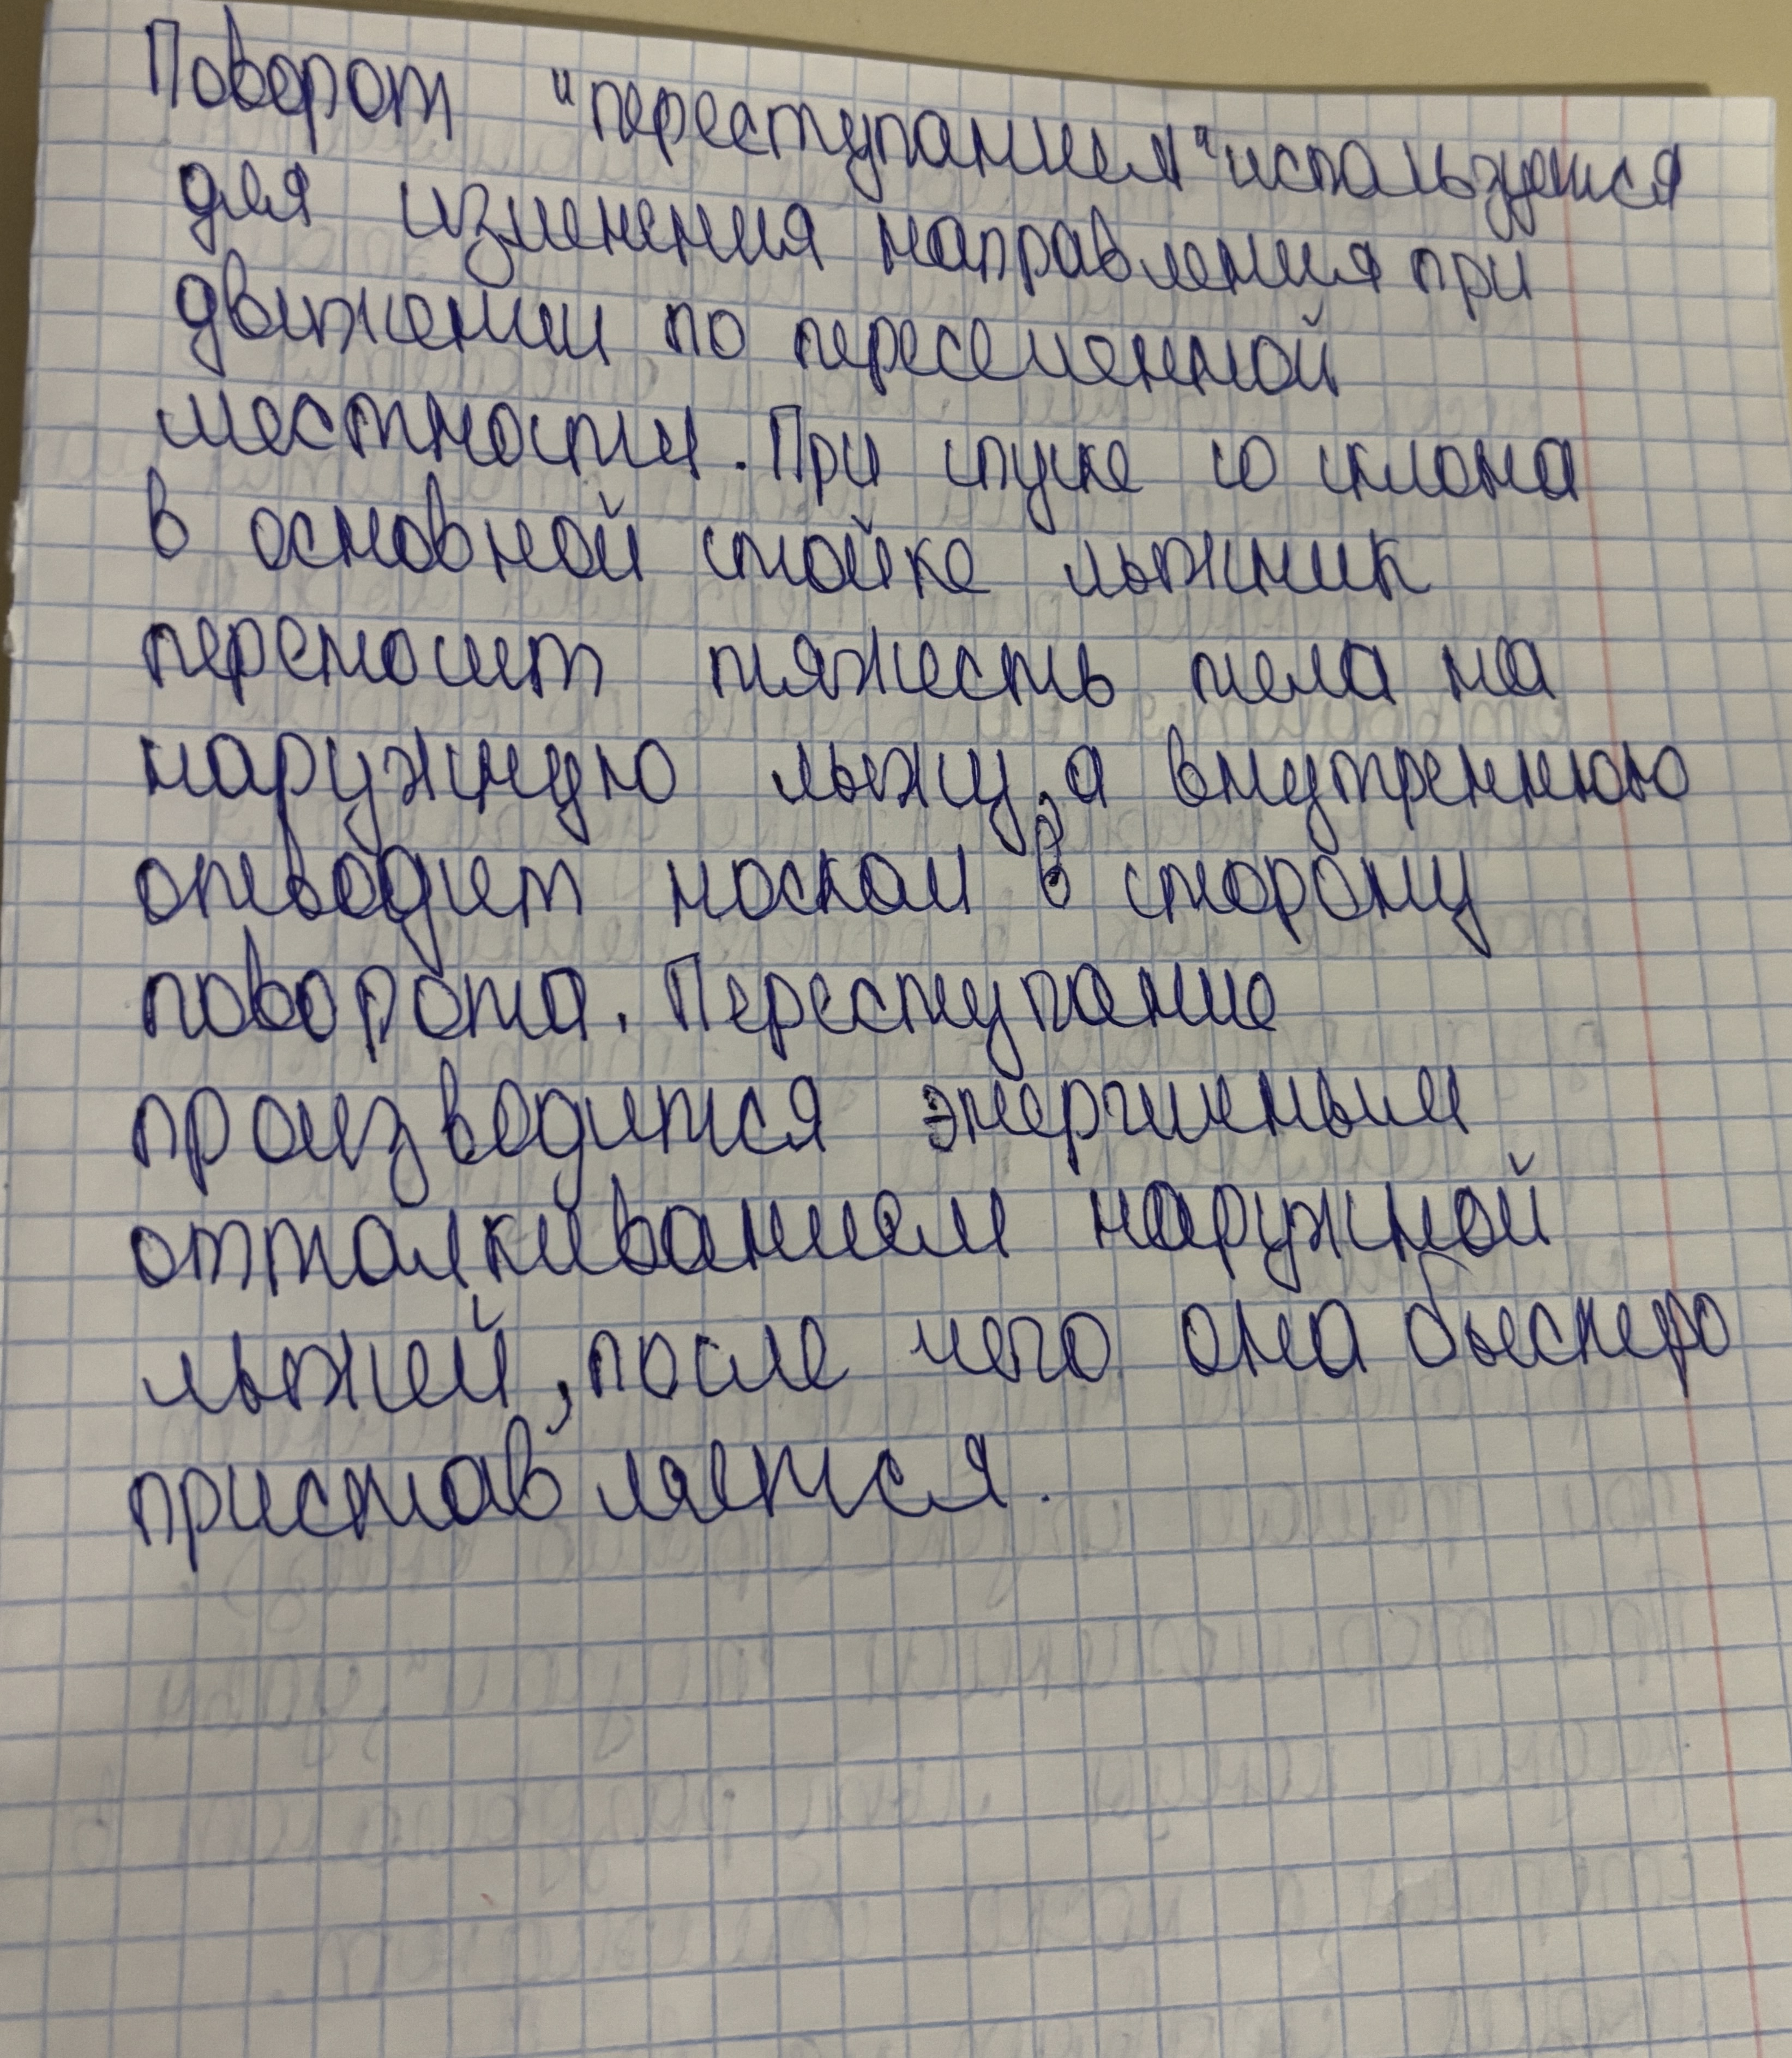 Поворот "переступанием" используется
для изменения направления при
движении по пересеченной
местности. При спуске со склона
в основной стойке лыжник
переносит тяжесть тела на
наружную лыжу, а внутреннюю
отводит носком в сторону
поворота. Переступание
производится энергичным
отталкиванием наружной
лыжей, после чего она быстро
приставляется.